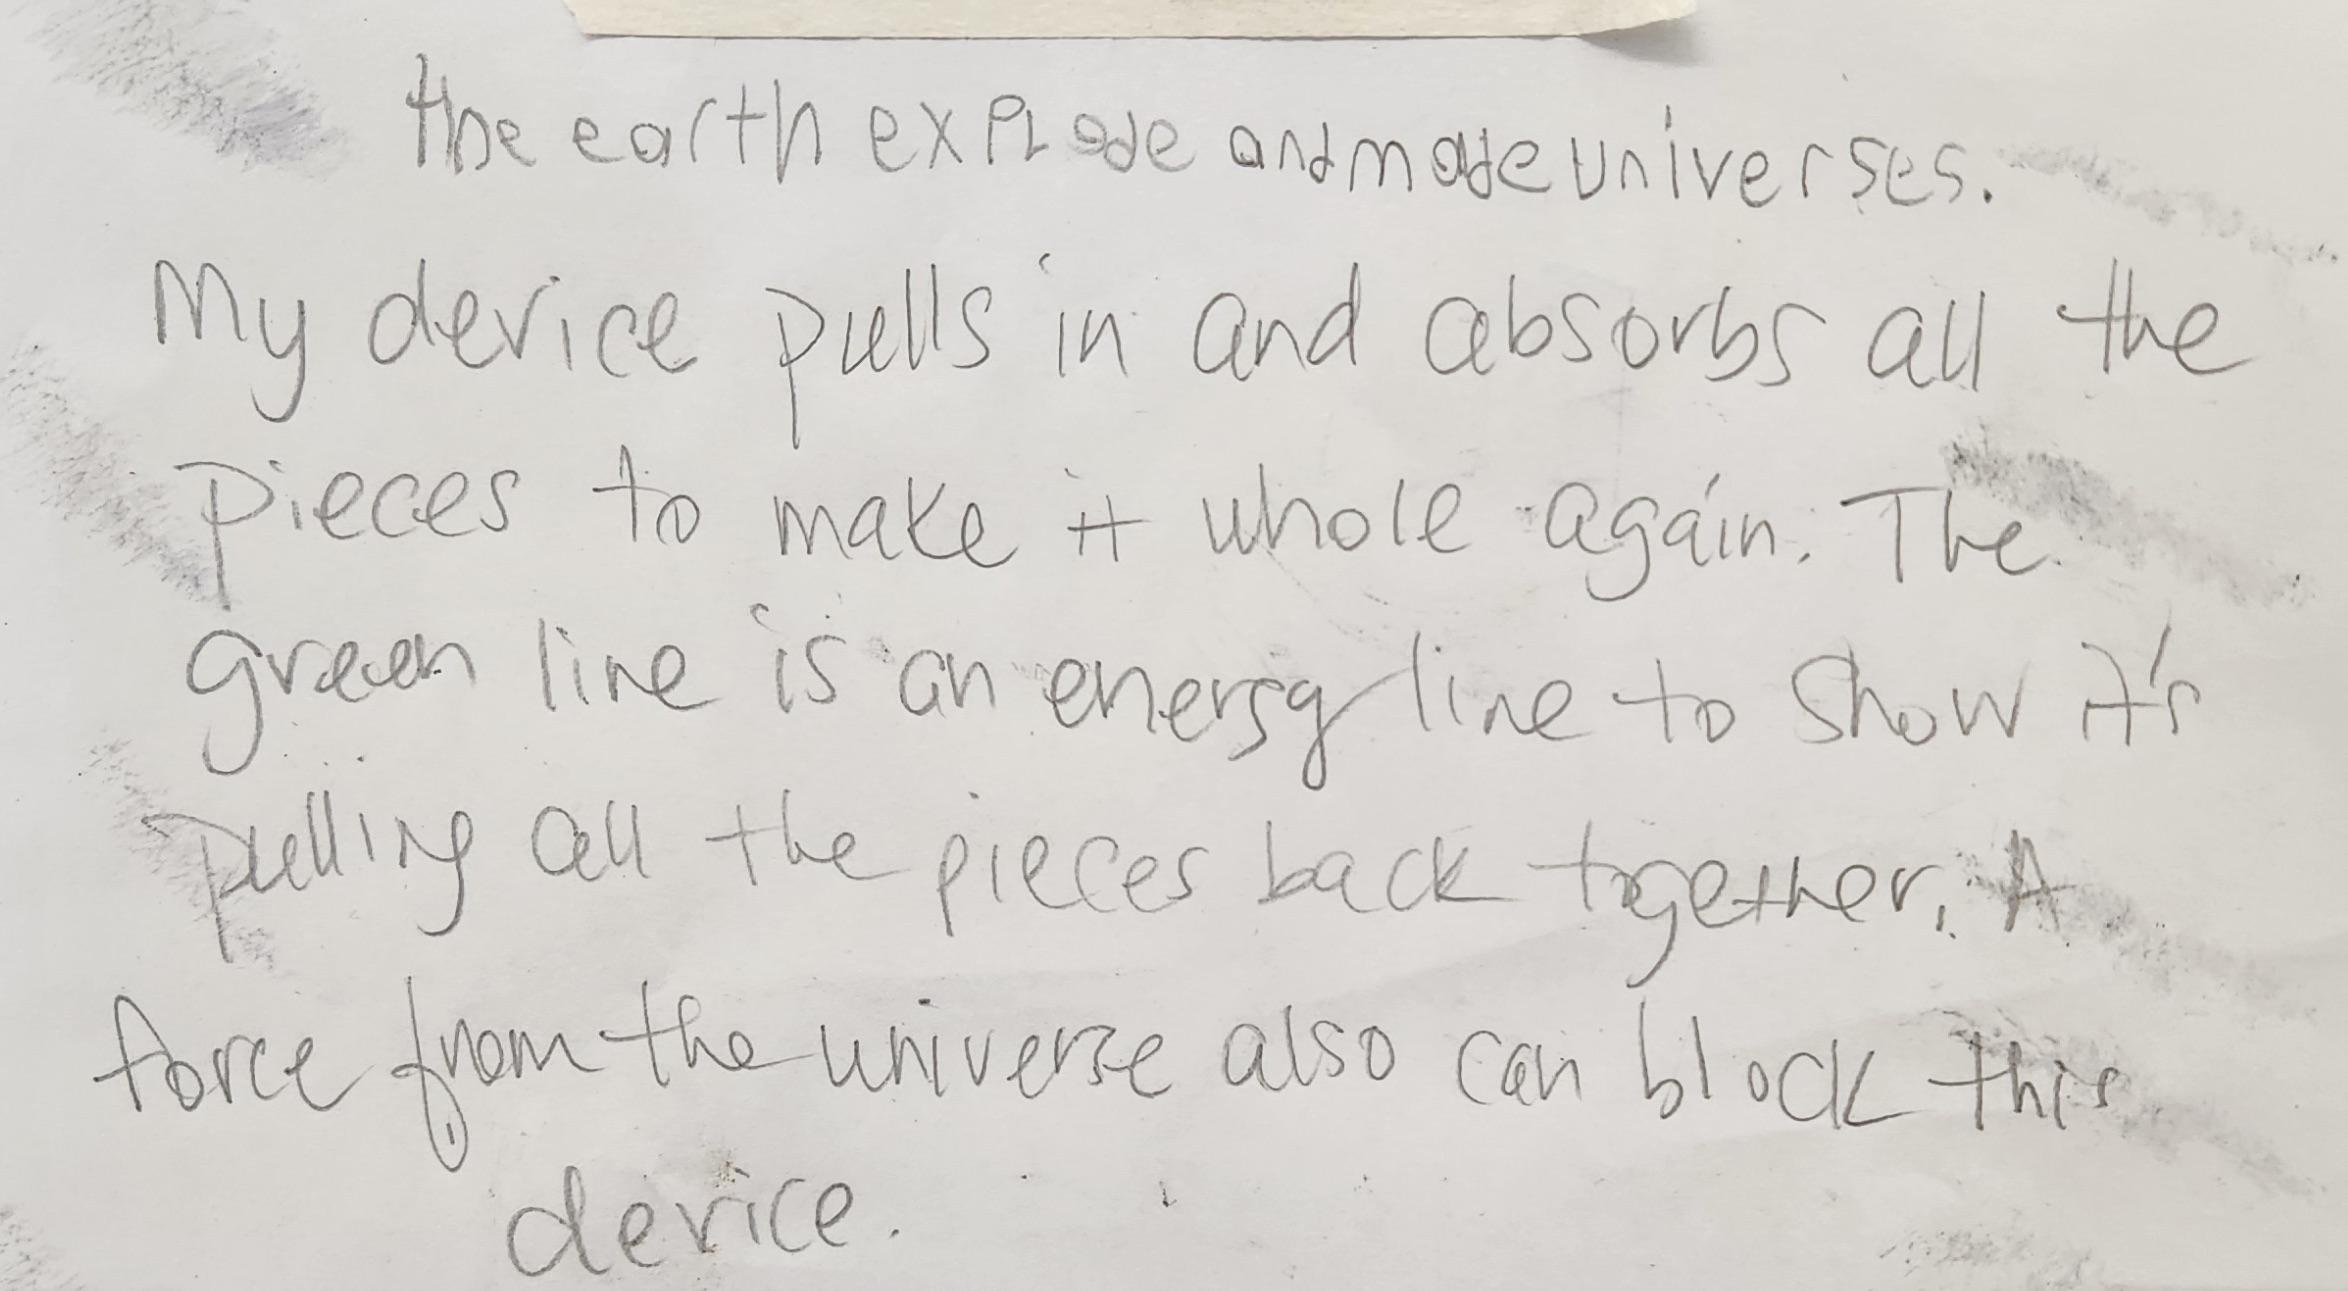 the earth explode and made universes.
My device pulls in and absorbs all the
pieces to make it whole again. The
green line is an energy line to show it's
pulling all the pieces back together. A
force from the universe also can block this
device.